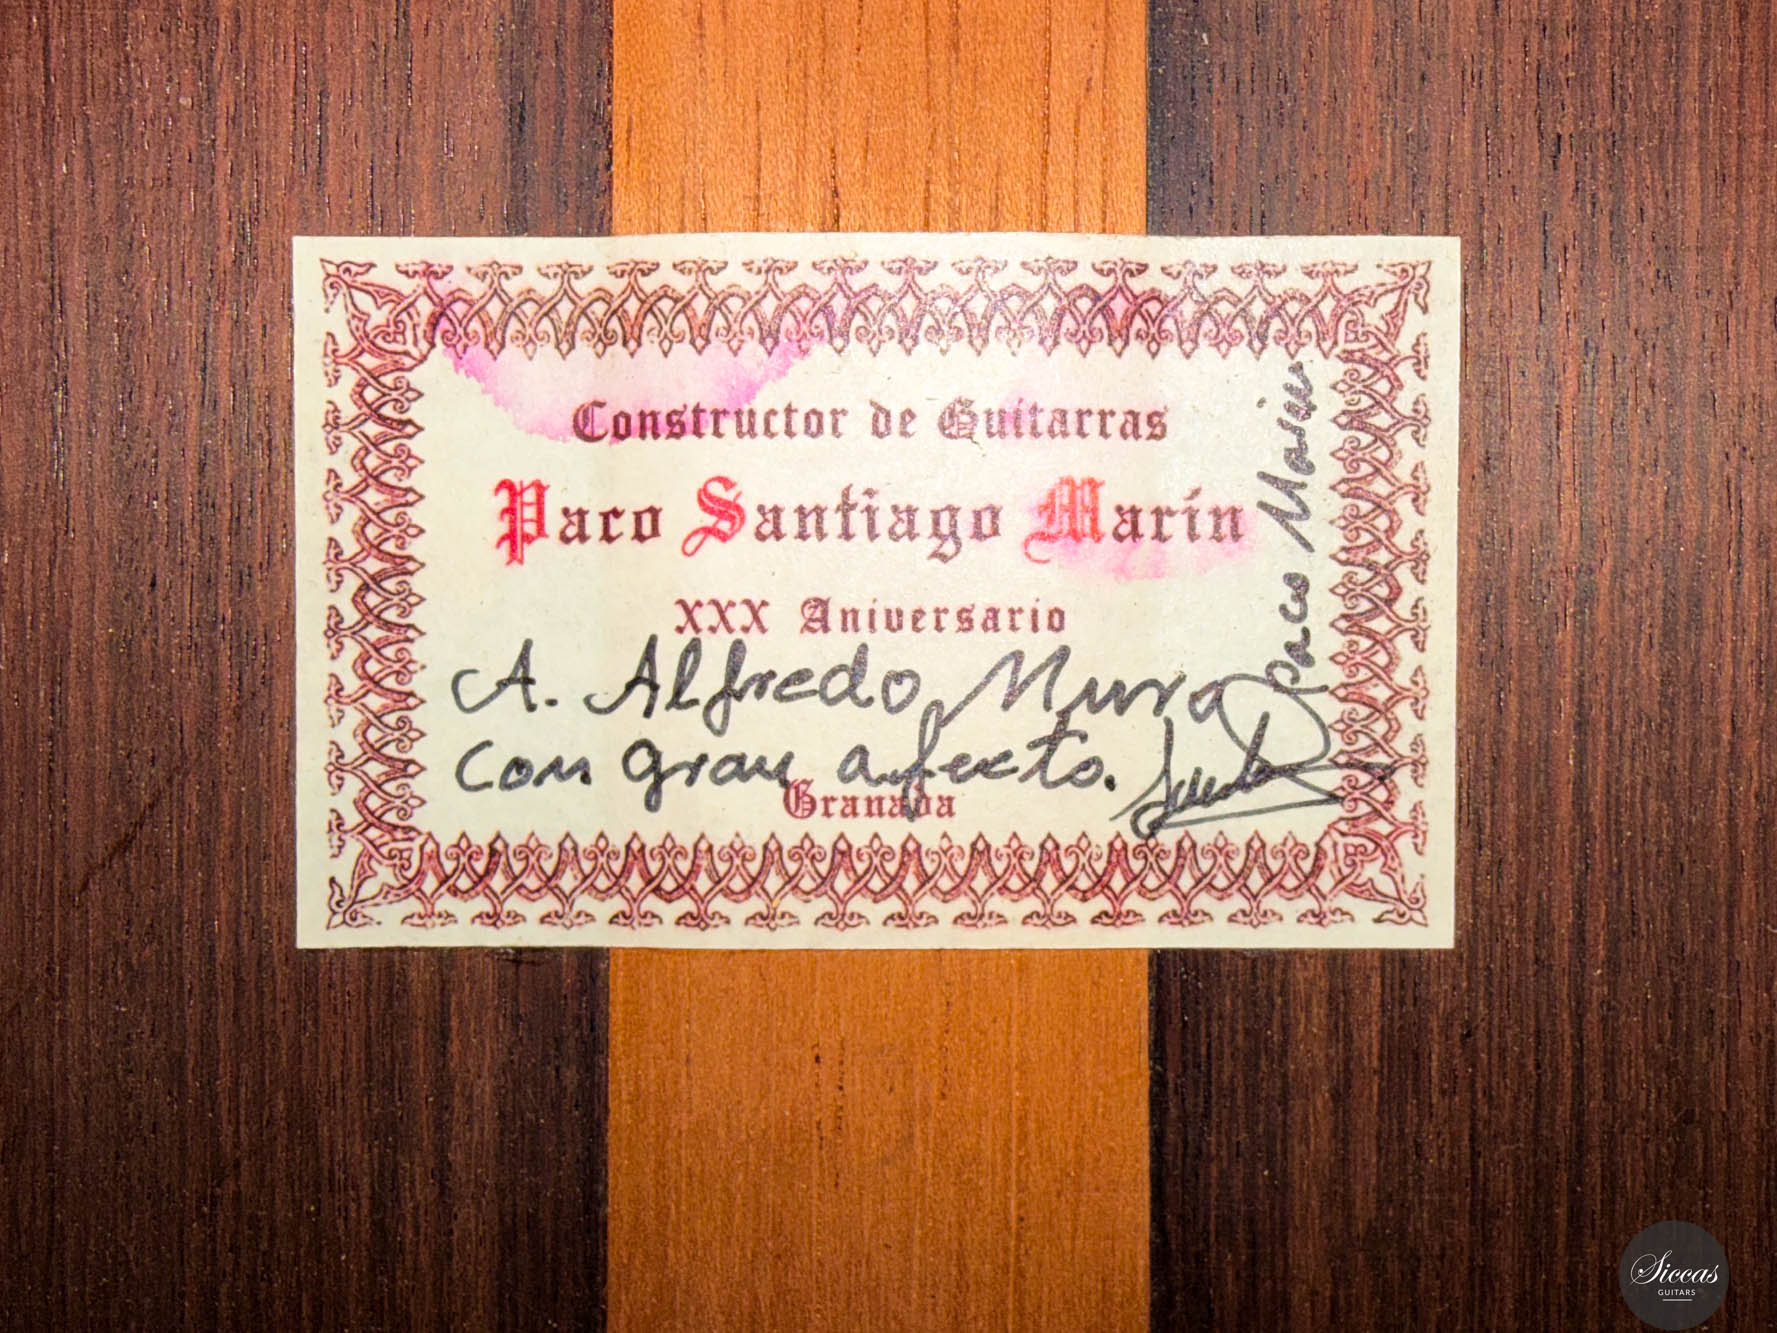 Constructor de Guitarras
Paco Santiago Marín
XXX Aniversario
A. Alfredo Muro
con gran afecto.
Granada
Paco Marin
Siccas
GUITARS